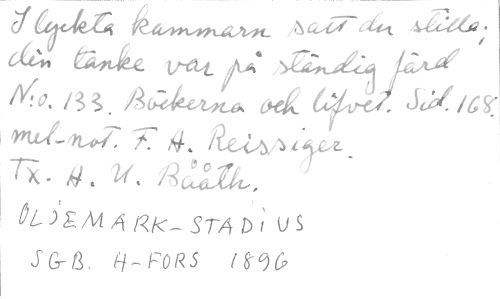 I lyckta kammarn satt du stilla;
din tanke var på ständig färd
N:o. 133. Böckerna och lifvet. Sid. 168.
mel-not. F. A. Reissiger.
Tx. A. U. Bååth.
OLJEMARK-STADIUS
SGB. H-FORS 1896